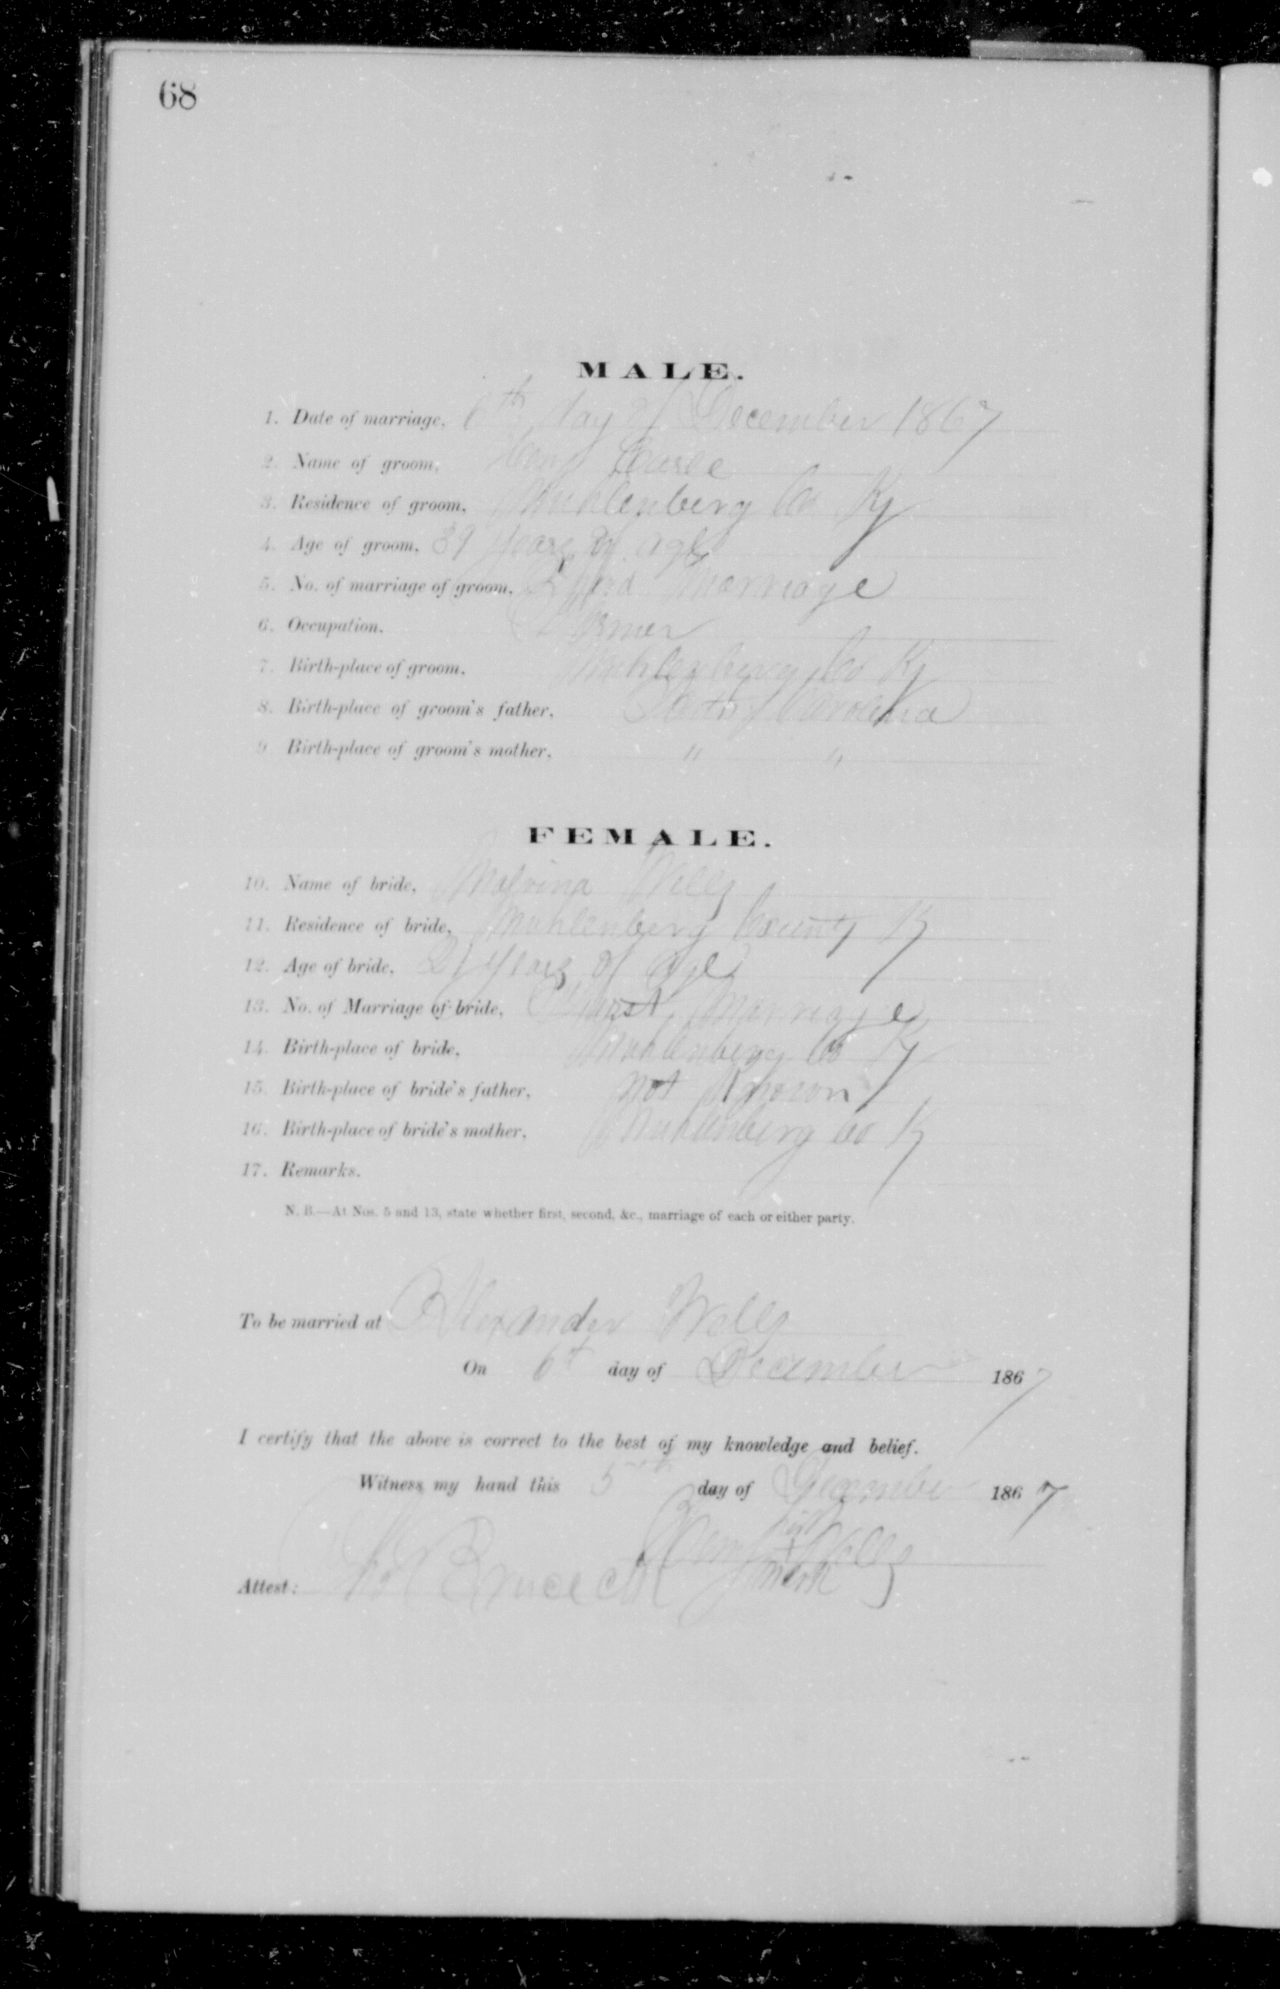 68
MALE.
1. Date of marriage, 6th day of December 1867
2. Name of groom,
3. Residence of groom, Muhlenberg Co Ky
4. Age of groom, 39 years of age
5. No. of marriage of groom, Marriage
6. Occupation, Farmer
7. Birth-place of groom, Muhlenberg Co Ky
8. Birth-place of groom's father, Carolina
9 Birth-place of groom's mother, " "
FEMALE.
10. Name of bride, Malvina Wells
11. Residence of bride, Muhlenberg County Ky
12. Age of bride, 21 years of age
13. No. of Marriage of bride, First Marriage
14. Birth-place of bride, Muhlenberg Co Ky
15. Birth-place of bride's father, not Known
16. Birth-place of bride's mother, Muhlenberg Co Ky
17. Remarks.
N. B.—At Nos. 5 and 13, state whether first, second, &c., marriage of each or either party.
To be married at Alexander Wells
On 6th day of December 1867
I certify that the above is correct to the best of my knowledge and belief.
Witness my hand this 5th day of December 1867
his
Wells
mark
Attest: Bruce